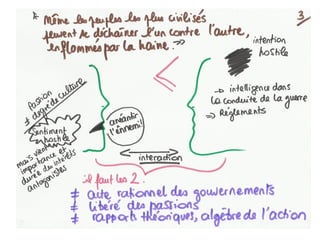 « Même les peuples les plus civilisés
peuvent se déchaîner l'un contre l'autre,
enflammés par la haine »
3
intention
hostile
Passion
≠ degré de culture
Sentiment
hostile
mais vient
importance et
durée des intérêts
antagonistes
anéantir
l'ennemi!
<
→ intelligence dans
la conduite de la guerre
→ Règlements
interaction
il faut les 2.
≠ acte rationnel des gouvernements
≠ libéré des passions
≠ rapports théoriques, algèbre de l'action